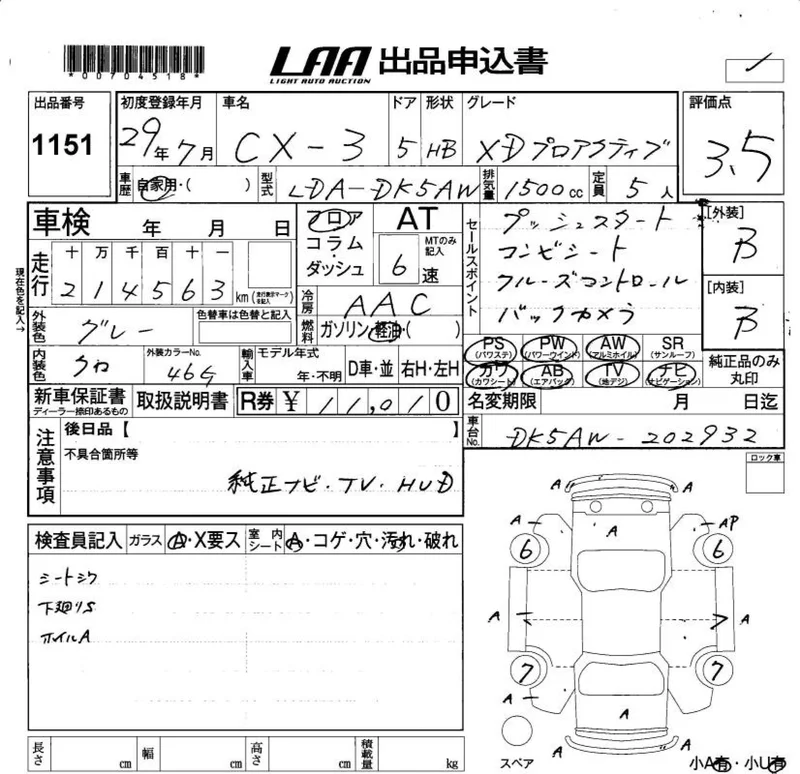 *00704518*
LAA 出品申込書
LIGHT AUTO AUCTION
出品番号 1151
初度登録年月 29年7月
車名 CX-3
ドア 5
形状 HB
グレード XDプロアクティブ
評価点 3.5
車歴 自家用・( )
型式 LDA-DK5AW
排気量 1500cc
定員 5人
車検 年 月 日
走行 十 万 千 百 十 一
214563km (走行表示マークを記入)
現在色を記入→
外装色 グレー
色替車は色替と記入
内装色 クロ
外装カラーNo. 46G
フロア
コラム・
ダッシュ
AT
6速 MTのみ記入
冷房 AAC
燃料 ガソリン・軽油・( )
輸入車 モデル年式 年・不明
D車・並 右H・左H
セールスポイント
プッシュスタート
コンビシート
クルーズコントロール
バックカメラ
[外装] B
[内装] B
PS (パワステ) PW (パワーウインド) AW (アルミホイル) SR (サンルーフ)
カワ (カワシート) AB (エアバッグ) TV (地デジ) ナビ (ナビゲーション)
純正品のみ丸印
新車保証書 ディーラー捺印あるもの
取扱説明書
R券 ¥ 11,010
名変期限 月 日迄
車台No. DK5AW-202932
注意事項
後日品【 】
不具合箇所等
純正ナビ・TV・HUD
ロック車
検査員記入
ガラス A・X要ス
室内シート A・コゲ・穴・汚れ・破れ
シートシワ
下廻りS
ホイルA
A A
A A AP
6 6
A A A
7 7
A A
A A
スペア
小A有・小U有
長さ cm 幅 cm 高さ cm 積載量 kg